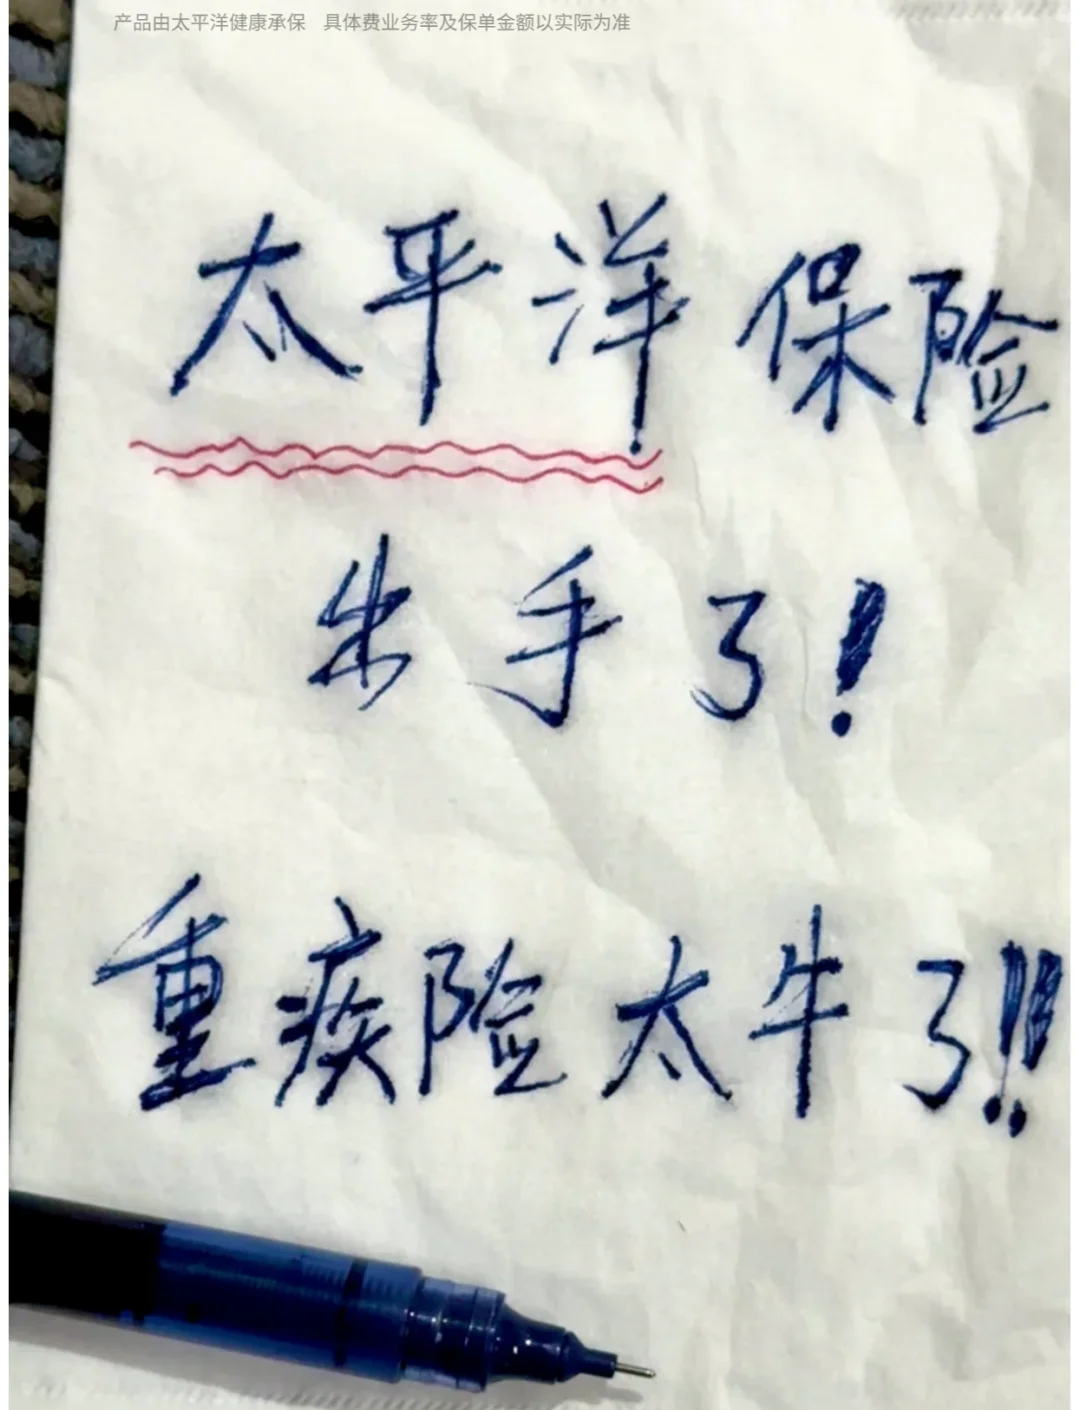 产品由太平洋健康承保 具体费业务率及保单金额以实际为准
太平洋保险
出手了!
重疾险太牛了!!